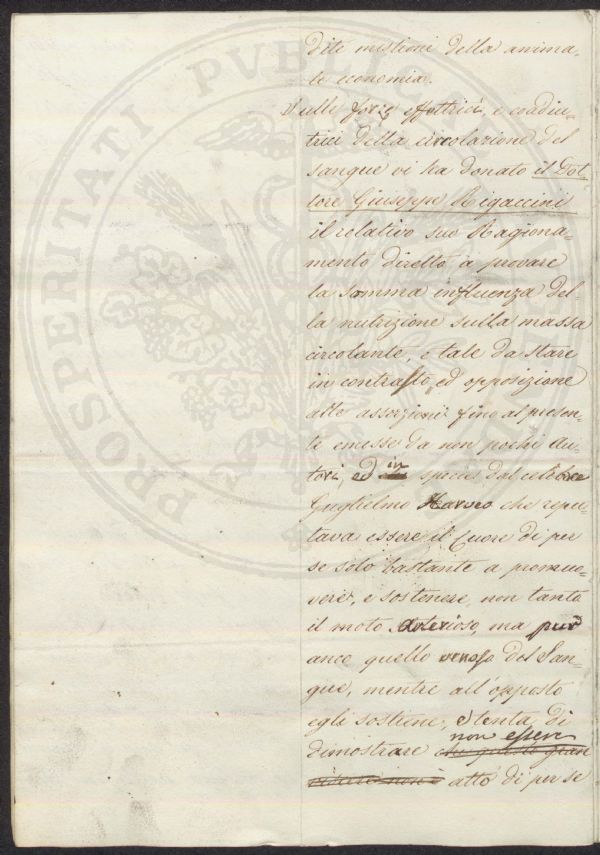 dite mistioni della anima-
le economia.
Sulle forze effettrici, e coadiu-
trici della circolazione del
sangue vi ha donato il Dot-
tore Giuseppe Rigaccini
il relativo suo Ragiona-
mento diretto a provare
la somma influenza del-
la nutrizione sulla massa
circolante, e tale da stare
in contrasto, ed opposizione
alle asserzioni fino al presen-
te emesse da non pochi Au-
tori, ed in specie dal celebre
Guglielmo Harveo che repu-
tava essere il Cuore di per
se solo bastante a promuo-
vere, e sostenere non tanto
il moto Arterioso, ma pur
anco quello venoso del San-
gue, mentre all'opposto
egli sostiene, e tenta di
non essere
dimostrare che questo gran
viscere non è atto di per se
PROSPERITATI PUBLICAE